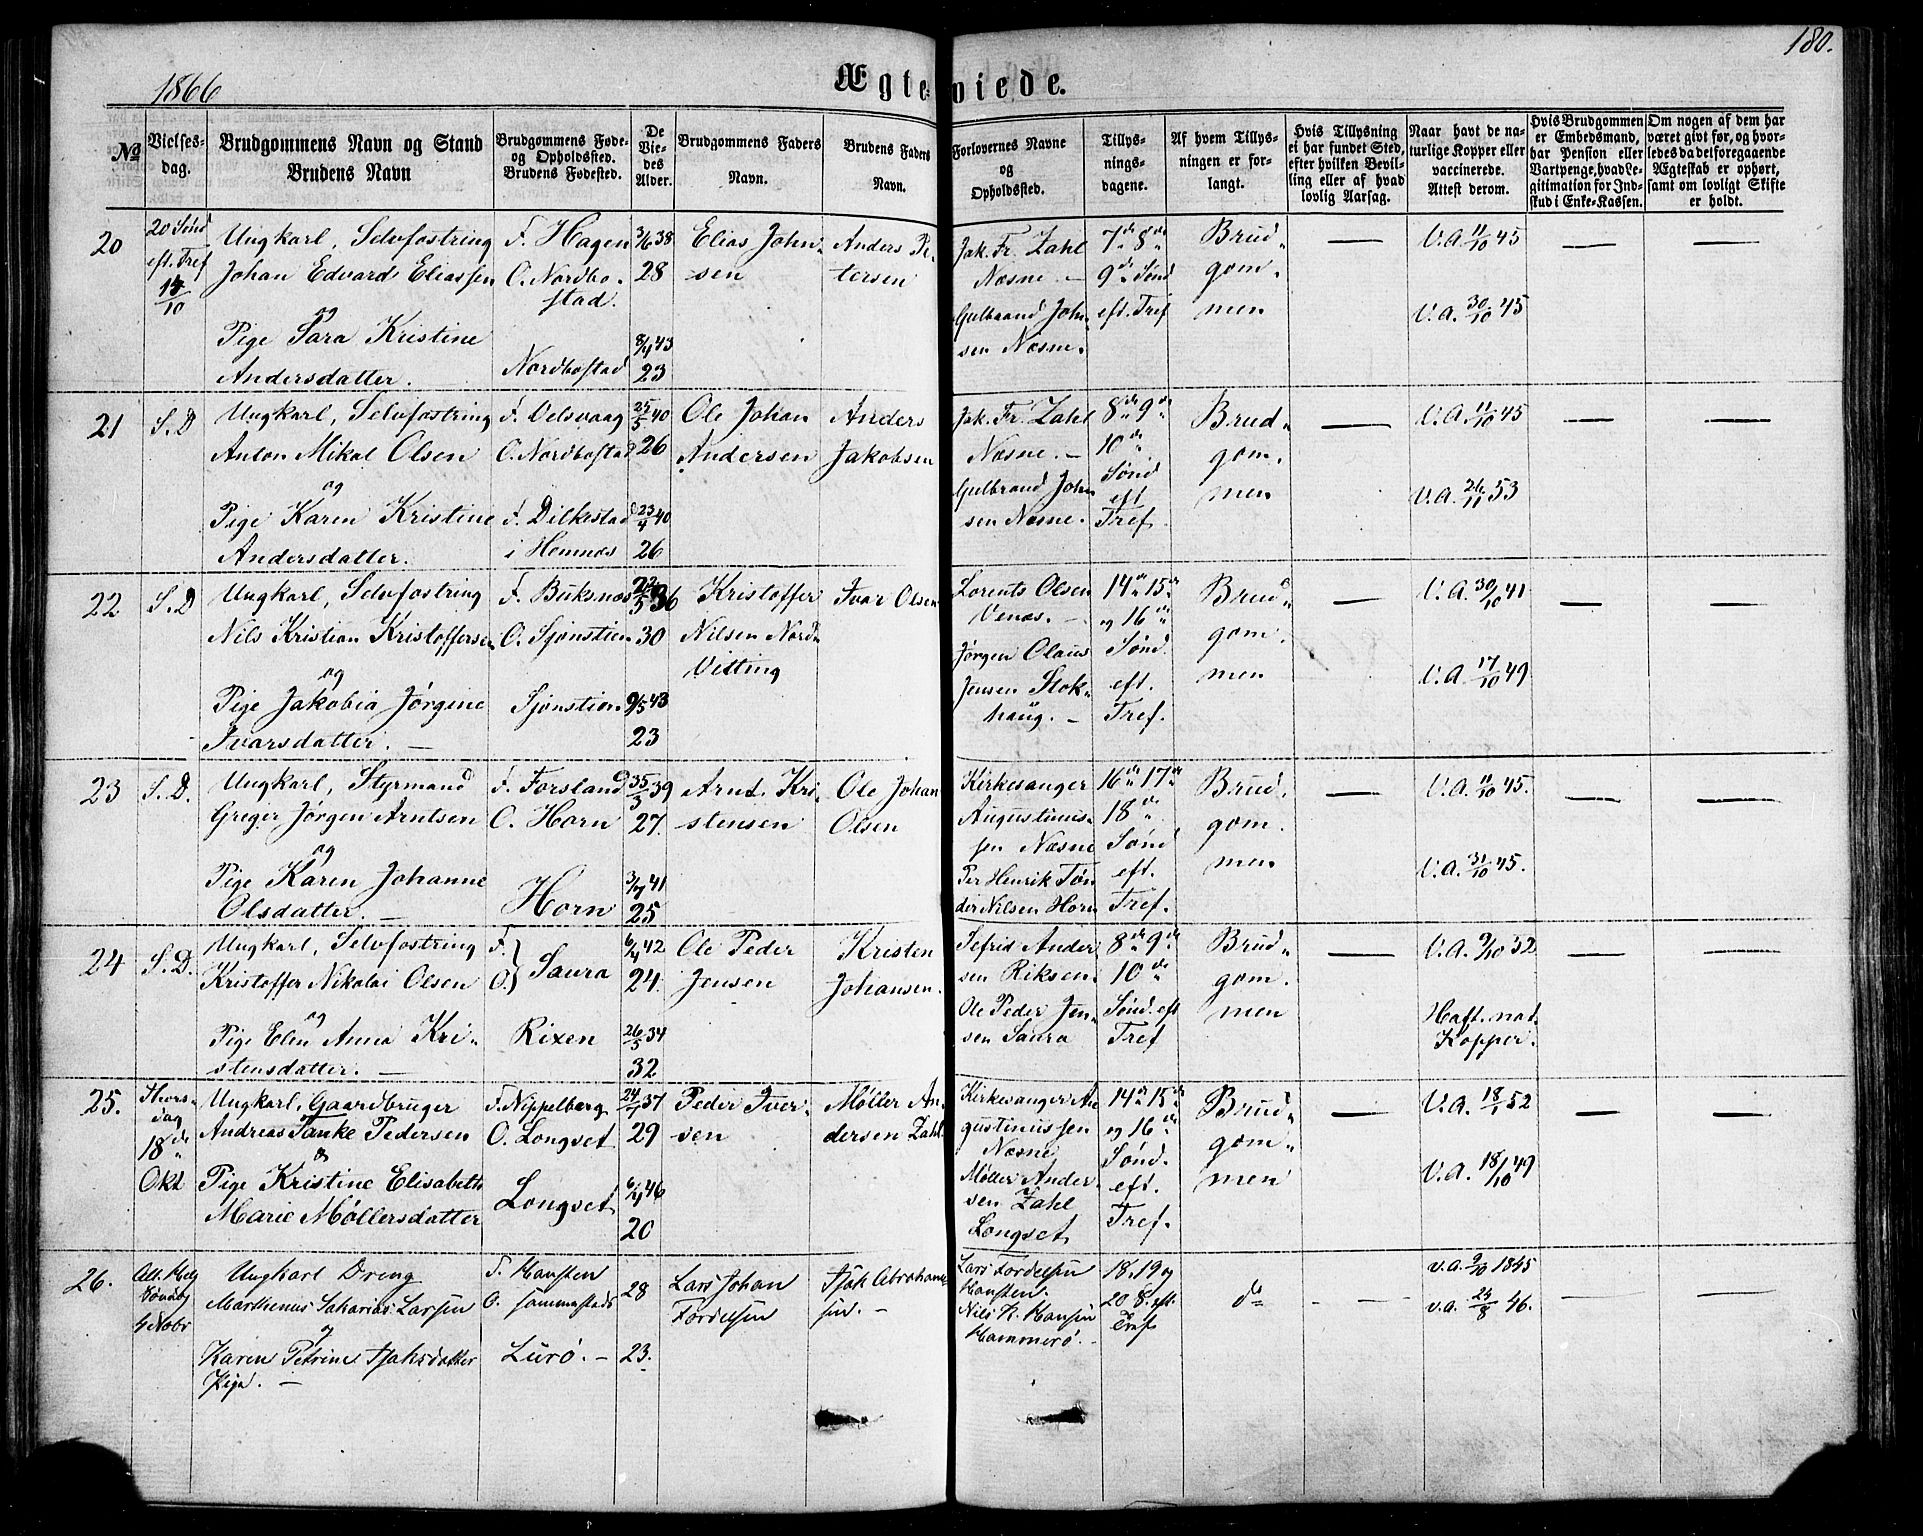 1866
180.
Ægteviede.
No
Vielses-
dag.
Brudgommens Navn og Stand
Brudens Navn
Brudgommens Føde-
og Opholdssted.
Brudens Fødested.
De
Vie-
des
Alder.
Brudgommens Faders
Navn.
Brudens Faders
Navn.
Forlovernes Navne
og
Opholdssted.
Tillys-
nings-
dagene.
Af hvem Tillys-
ningen er for-
langt.
Hvis Tillysning
ei har fundet Sted,
efter hvilken Bevil-
ling eller af hvad
lovlig Aarsag.
Naar havt de na-
turlige Kopper eller
vaccinerede.
Attest derom.
Hvis Brudgommen
er Embedsmand,
har Pension eller
Vartpenge, hvad Le-
gitimation for Ind-
skud i Enke-Kassen.
Om nogen af dem har
været givt før, og hvor-
ledes da det foregaaende
Ægteskab er ophørt,
samt om lovligt Skifte
er holdt.
20
20 Sønd
eft. Tref
14/10
Ungkarl, Selvfostring
Johan Edvard Eliassen
og
Pige Sara Kristine
Andersdatter.
F. Hagen
O. Nordbo-
stad.
Nordbostad
3/6 38
28
8/4 43
23
Elias John-
sen
Anders Pe-
tersen
Jak. Fr. Zahl
Næsne. —
Gulbrand John-
sen Næsne.
7de 8de
9de Sønd
eft. Tref
Brud-
gom-
men
—
V.A. 11/10 45
V.A. 30/10 45
—
—
21
S.D
Ungkarl, Selvfostring
Anton Mikal Olsen
og
Pige Karen Kristine
Andersdatter.
F. Velsvaag
O. Nordbostad
F. Dilkestad
i Hemnæs
25/5 40
26
23/4 40
26
Ole Johan
Andersen
Anders
Jakobsen
Jak. Fr. Zahl
Næsne. —
Gulbrand John-
sen Næsne.
8de 9de
10de
Sønd
eft
Tref.
Brud-
gom-
men
—
V.A. 11/10 45
V.A. 26/11 53
—
—
22
S.D
Ungkarl, Selvfostring
Nils Kristian Kristoffersen
og
Pige Jakobia Jørgine
Ivarsdatter. —
F. Buksnæs
O. Sjonstien
Sjonstien
22/5 36
30
9/5 43
23
Kristoffer
Nilsen Nord-
Vitting
Ivar Olsen
Lorents Olsen
Venæs. —
Jørgen Olaus
Jensen Stok-
haug. —
14de 15de
og 16de
Sønd.
eft.
Tref.
Brud-
gom-
men
—
V.A. 30/10 41
V.A. 17/10 49
—
—
23
S.D.
Ungkarl, Styrmand
Greger Jørgen Arntsen
og
Pige Karen Johanne
Olsdatter. —
F. Forsland
O. Horn
Horn
/3 39
27.
3/7 41
25
Arnt. Kri-
stensen
Ole Johan
Olsen
Kirkesanger
Augustinus-
sen Næsne
Per Henrik Tøn
der Nilsen Horn
16de 17de
18de
Sønd
eft.
Tref.
Brud-
gom-
men
—
V.A. 11/10 45.
V.A. 31/10 45.
—
—
24
S.D.
Ungkarl, Selvfostring
Kristoffer Nikolai Olsen
og
Pige Elen Anna Kri-
stensdatter. —
F.
O.} Saura
Rixen
6/4 42
24.
26/5 34
32
Ole Peder
Jensen
Kristen
Johansen.
Sefrid Ander
sen Riksen.
Ole Peder Jen-
sen Saura
8de 9de
10de
Sønd. eft
Tref
Brud-
gom-
men
—
V.A. 9/10 52
Haft. nat.
Kopper.
—
—
25.
Thors-
dag
18de
Okt
Ungkarl, Gaardbruger
Andreas Tanke Pedersen
&
Pige Kristine Elisabeth
Marie Møllersdatter
F. Nippelberg
O. Longset
Longset
24/1 37
29
6/4 46
20
Peder Iver-
sen
Møller An-
dersen Zahl
Kirkesanger Au
gustinussen
Næsne
Møller Ander-
sen Zahl
Longset
14de 15de
og 16de
Sønd.
eft.
Tref.
Brud-
gom-
men
—
V.A. 18/1 52
V.A. 18/10 49
—
—
26.
All. Helg
Søndag
4 Nobr
Ungkarl Dreng
Marthenus Sakarias Larsen
og
Karen Petrine Isaksdatter
Pige. —
F. Hansten
O.
Lurö. —
28
23.
Lars Johan
Fordelsen
Isak Abraham-
sen. —
Lars Fordelsen
Hansten.
Nils K. Hansen
Hammerö. —
18. 19 og
20 S. eft.
Tref.
do
—
v.a. 9/10 1845
v.a. 24/8 46.
—
—